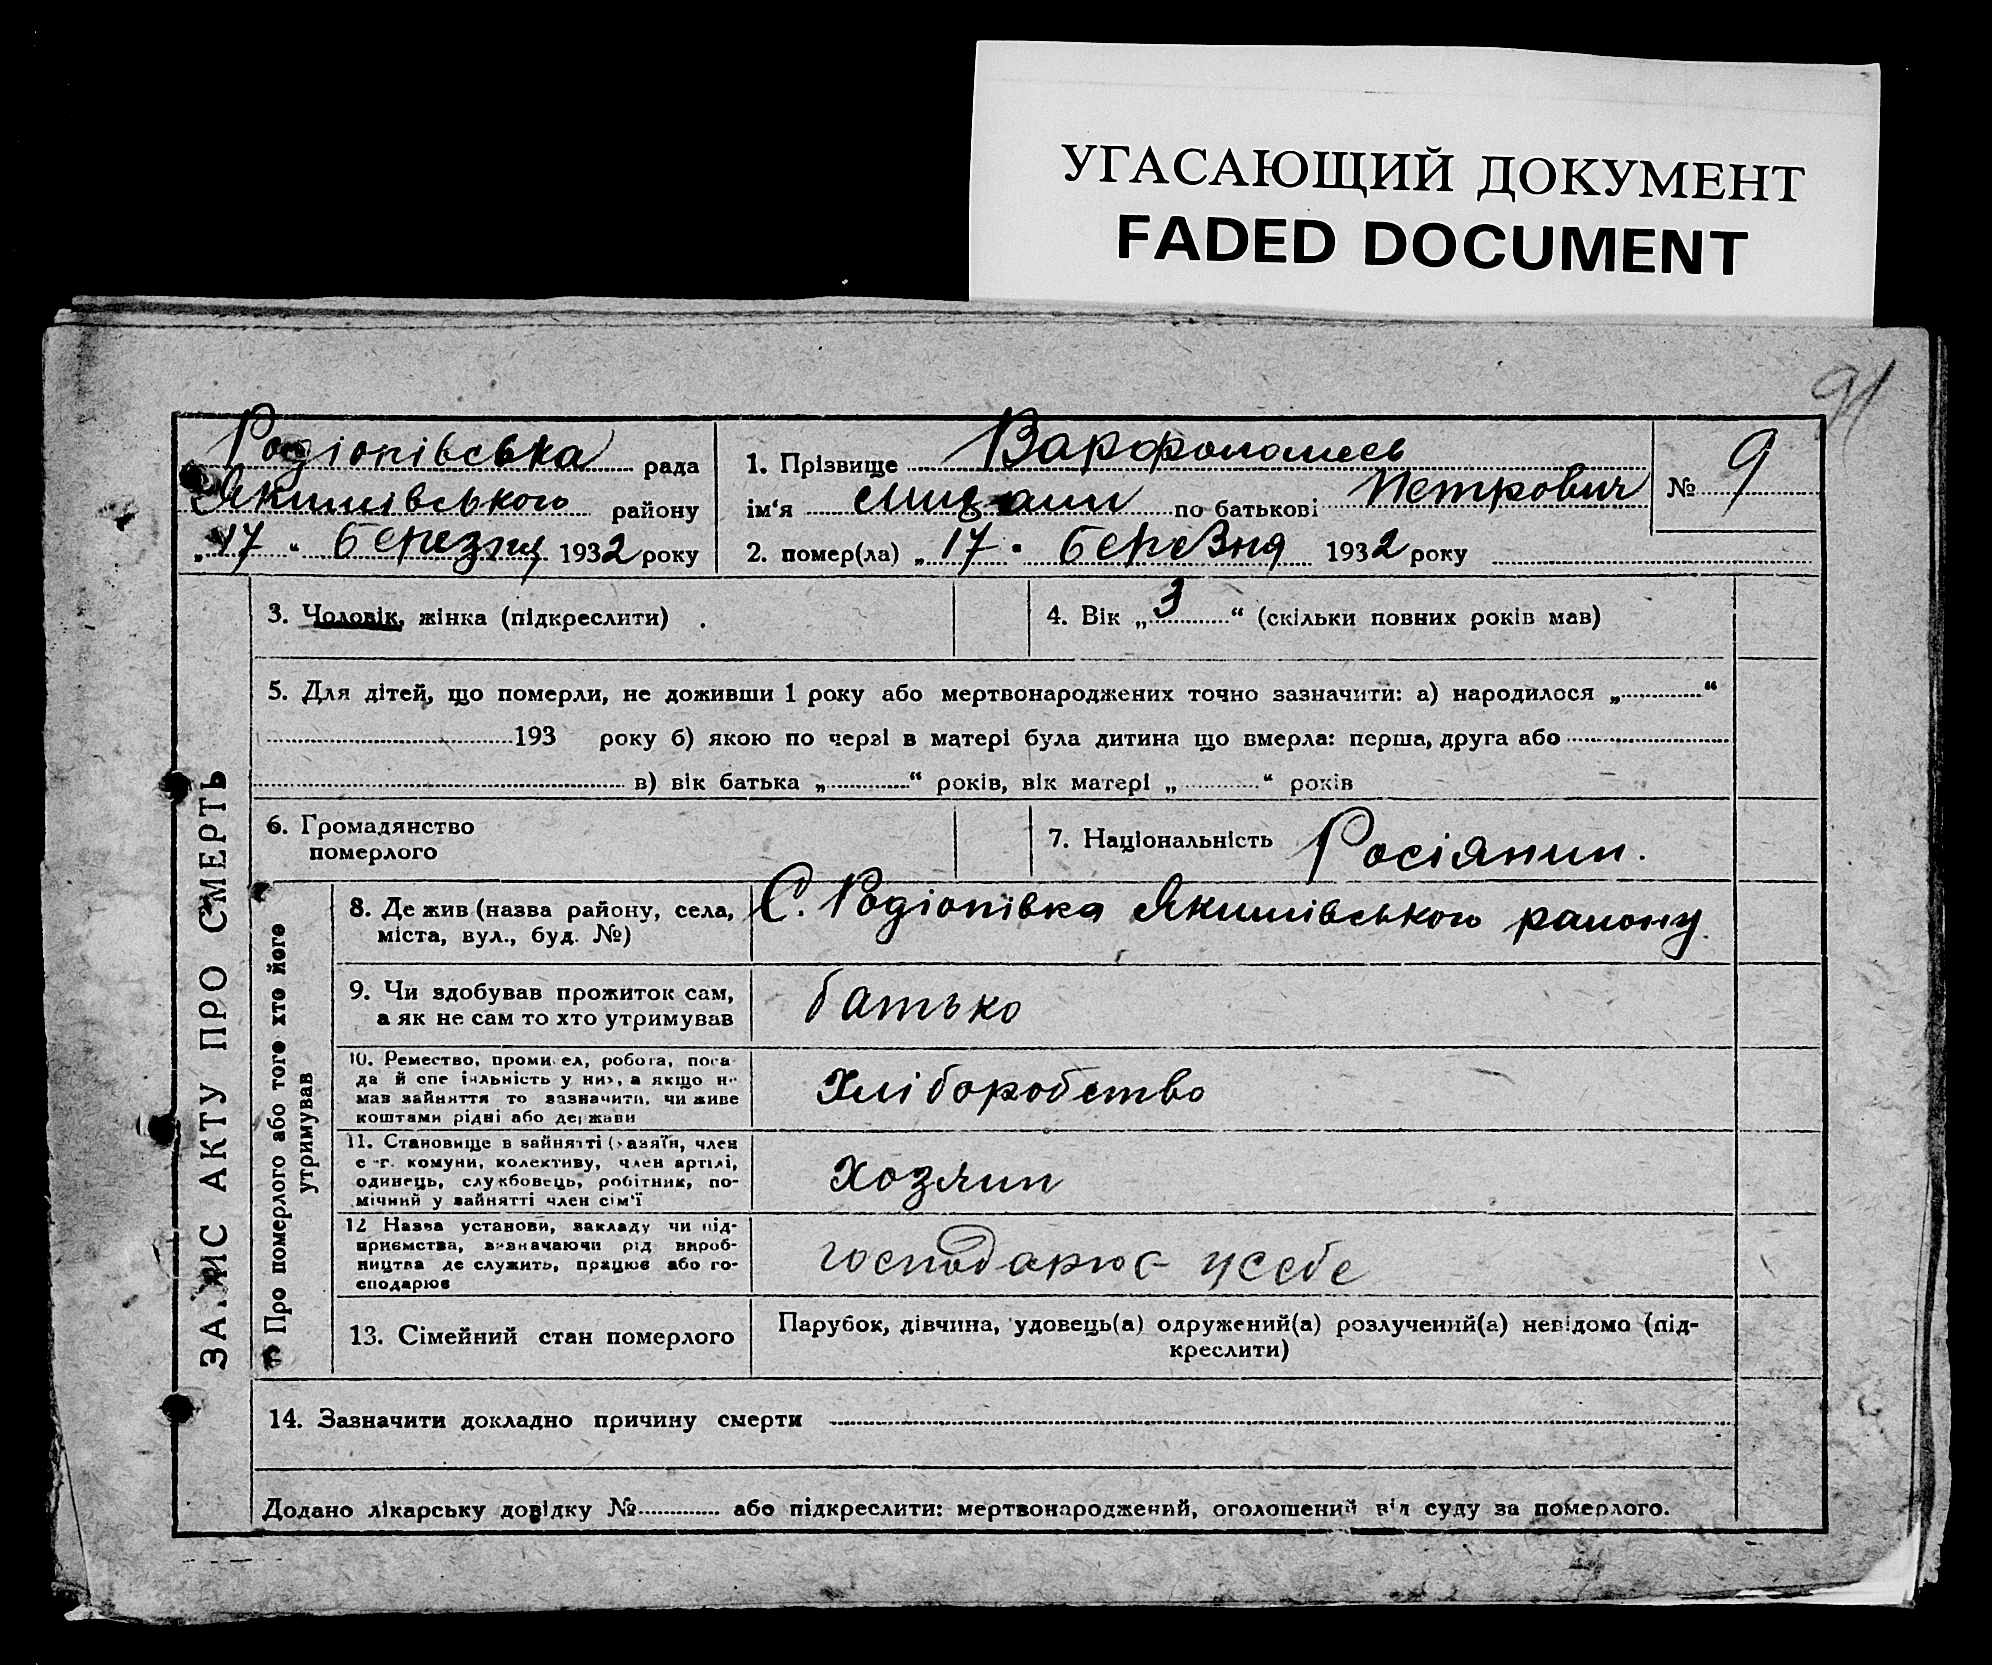 УГАСАЮЩИЙ ДОКУМЕНТ
FADED DOCUMENT
91
Родіонівська рада
Якимівського району
„17“ березня 1932 року
1. Прізвище Варфоломеев
ім‘я по батькові Петрович
№ 9
2. помер(ла) „17“ березня 1932 року
3. Чоловік, жінка (підкреслити)
4. Вік „3“ (скільки повних років мав)
5. Для дітей, що померли, не доживши 1 року або мертвонароджених точно зазначити: а) народилося „............“
193 року б) якою по черзі в матері була дитина що вмерла: перша, друга або
в) вік батька „............“ років, вік матері „............“ років
6. Громадянство
померлого
7. Національність Росіянин.
ЗАПИС АКТУ ПРО СМЕРТЬ
Про померлого або того хто його
утримував
8. Де жив (назва району, села,
міста, вул., буд. №)
С. Родіонівка Якимівського району.
9. Чи здобував прожиток сам,
а як не сам то хто утримував
батько
10. Ремество, промисел, робота, поса-
да й спеціяльність у ним, а якщо не
мав зайняття то зазначити, чи живе
коштами рідні або держави
Хліборобство
11. Становище в зайнятті (хазяїн, член
с.-г. комуни, колективу, член артілі,
одинець, службовець, робітник, по-
мічний у зайнятті член сім‘ї
хозяин
12 Назва установи, закладу чи під-
приємства, визначаючи рід вироб-
ництва де служить, працює або го-
сподарює
господарює у себе
13. Сімейний стан померлого
Парубок, дівчина, удовець(а) одружений(а) розлучений(а) невідомо (під-
креслити)
14. Зазначити докладно причину смерти
Додано лікарську довідку № ............ або підкреслити: мертвонароджений, оголошений від суду за померлого.